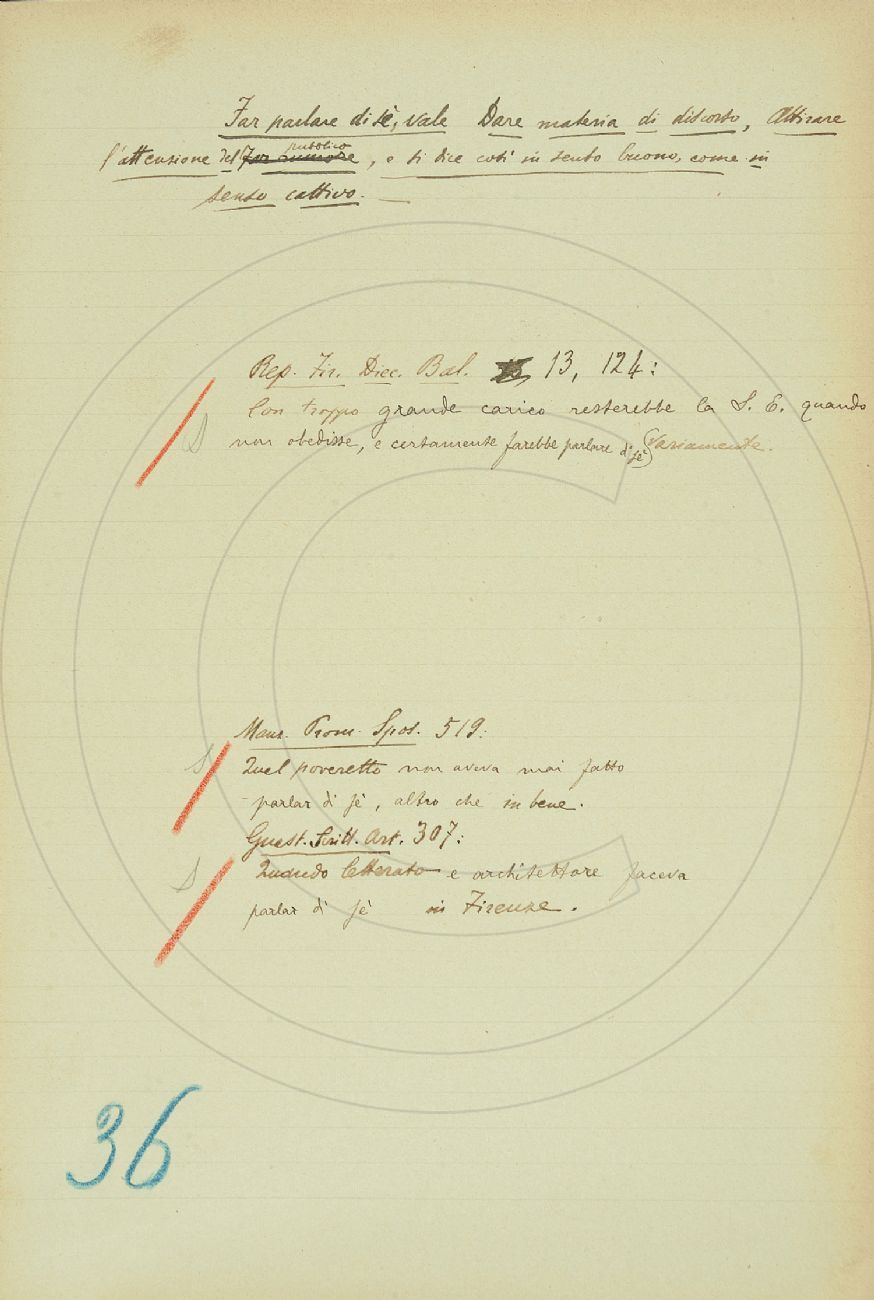 Far parlare di sè, vale Dare materia di discorso, Attirare
l'attenzione del pubblico, e si dice così in senso buono, come in
senso cattivo.
Rep. Fir. Diec. Bal. 13, 124:
Con troppo grande carico resterebbe la S. E. quando
non obedisse, e certamente farebbe parlare di sè variamente.
Manz. Prom. Spos. 519:
Quel poveretto non aveva mai fatto
parlar di sè, altro che in bene.
Guast. Scritt. Art. 307:
letterato e architettore faceva
parlar di sè in Firenze.
36